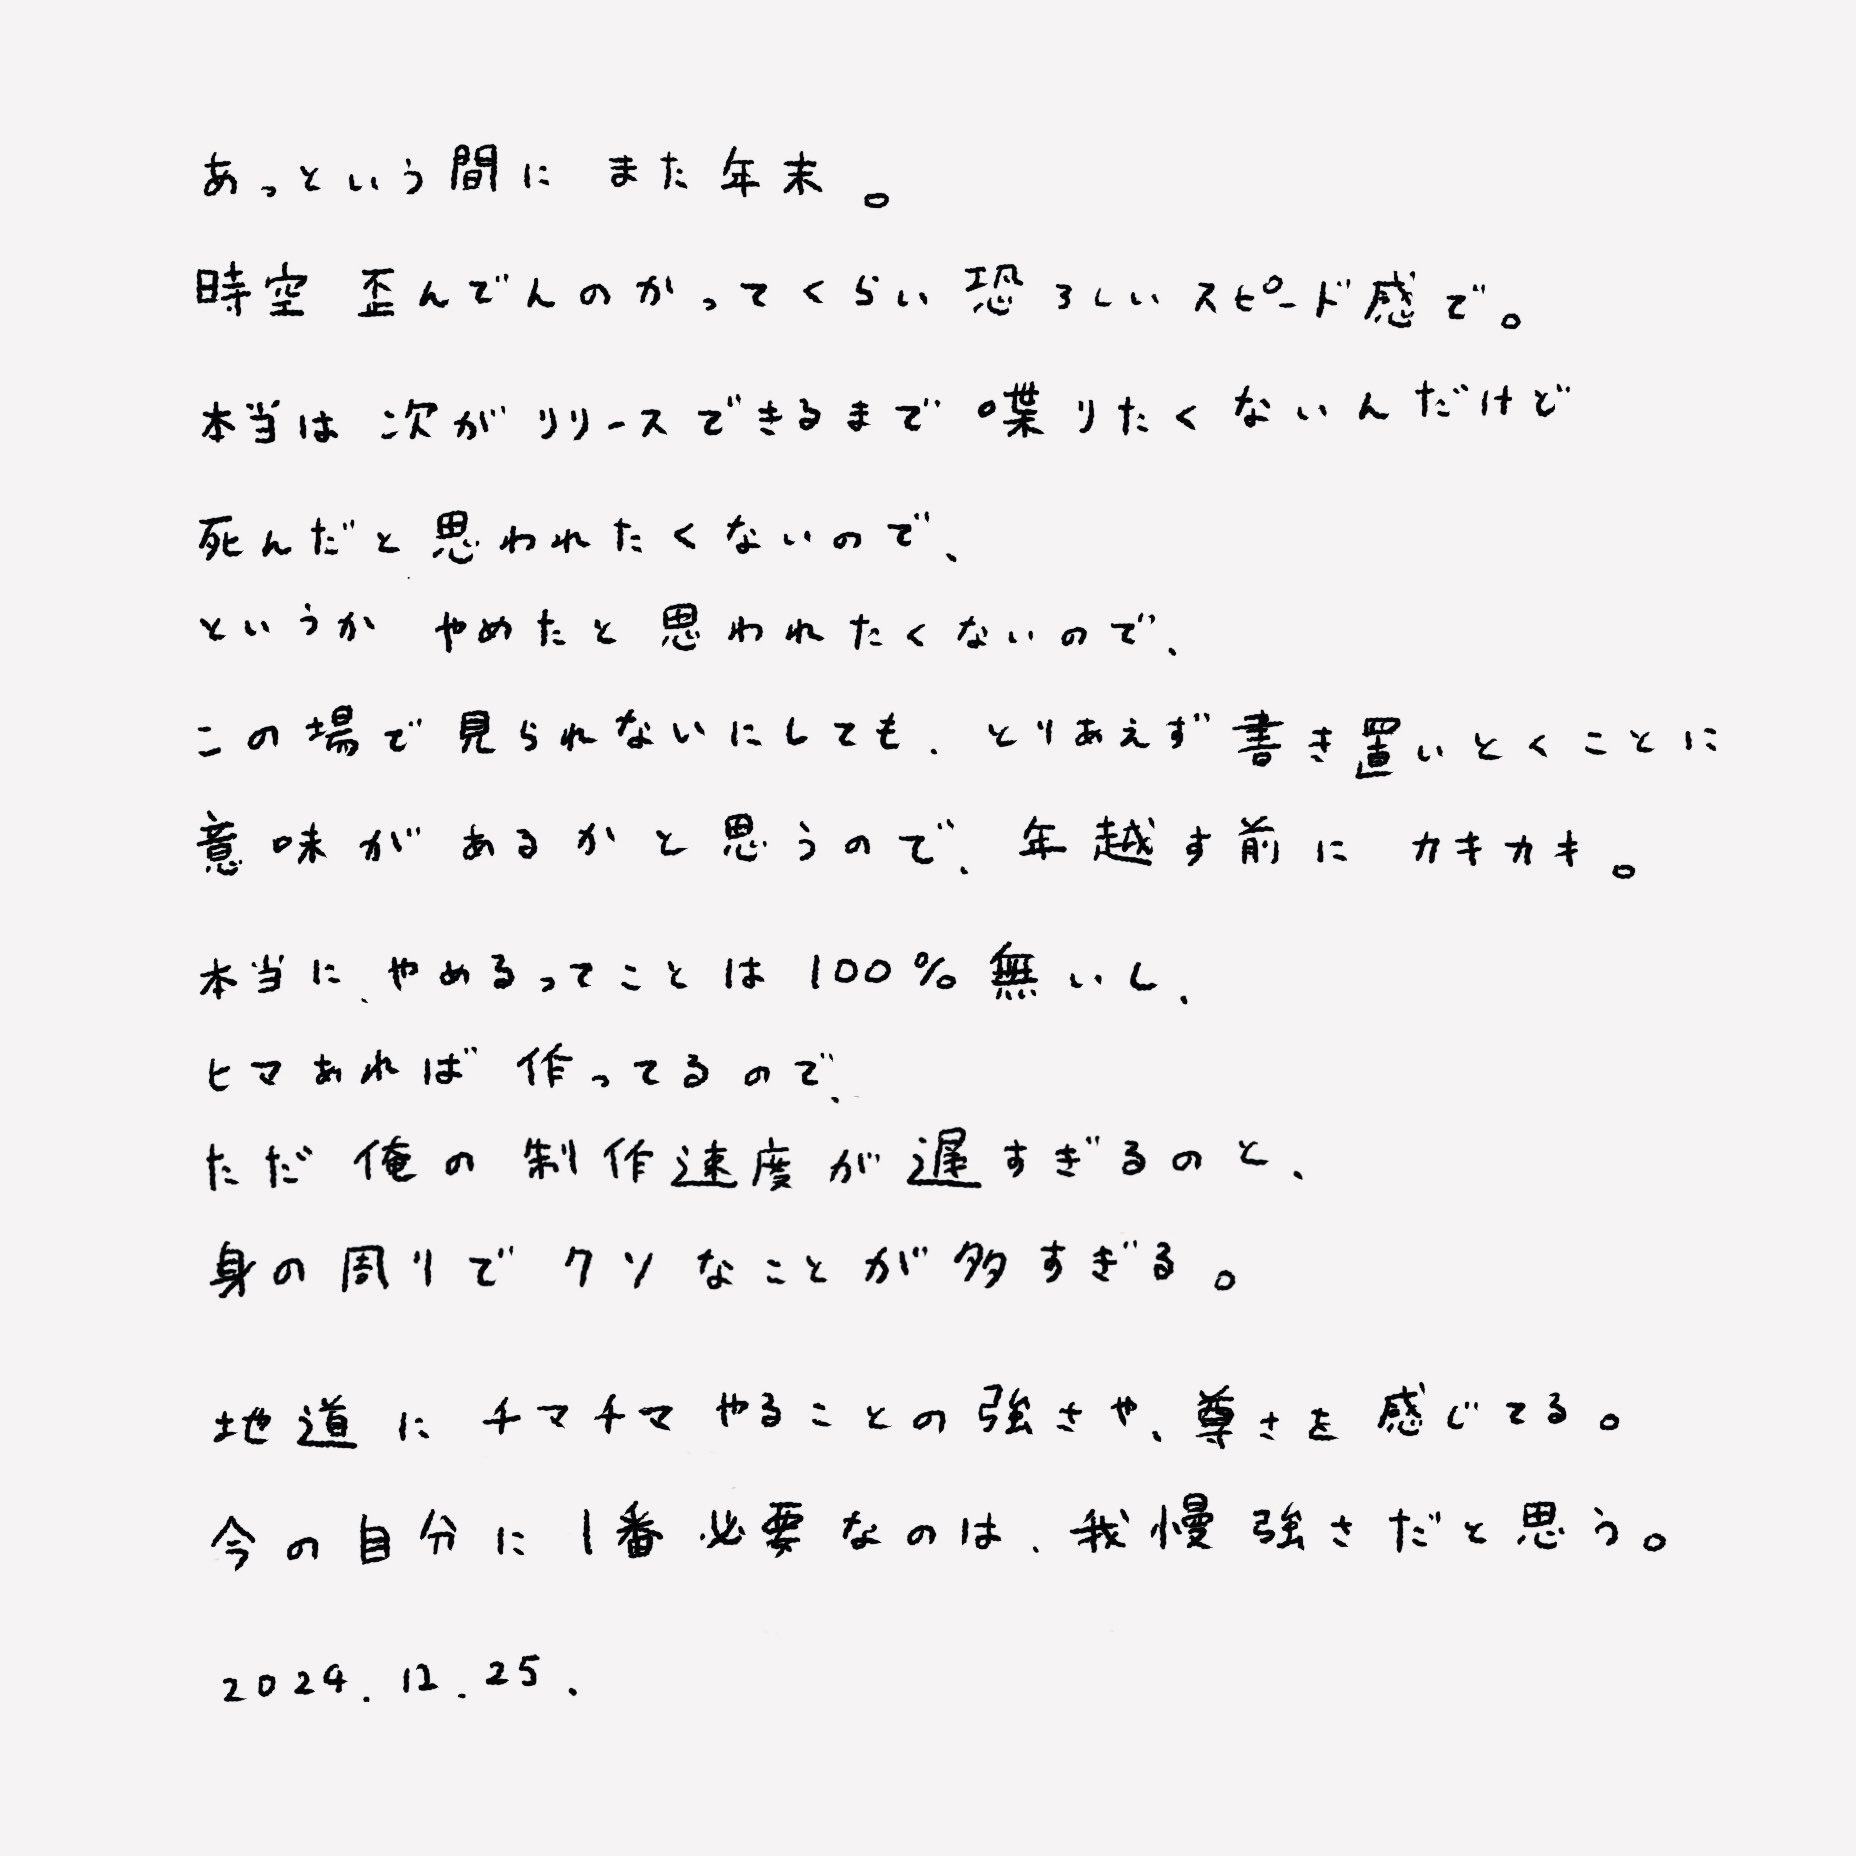 あっという間に また年末。
時空 歪んでんのかってくらい 恐ろしいスピード感で。
本当は 次がリリースできるまで 喋りたくないんだけど
死んだと思われたくないので、
というか やめたと思われたくないので、
この場で見られないにしても、とりあえず書き置いとくことに
意味があるかと思うので、年越す前に カキカキ。
本当に、やめるってことは 100%無いし、
ヒマあれば 作ってるので、
ただ 俺の 制作速度が遅すぎるのと、
身の周りで クソなことが多すぎる。
地道に チマチマやることの強さや、尊さを感じてる。
今の自分に 1番必要なのは、我慢強さだと思う。
2024.12.25.